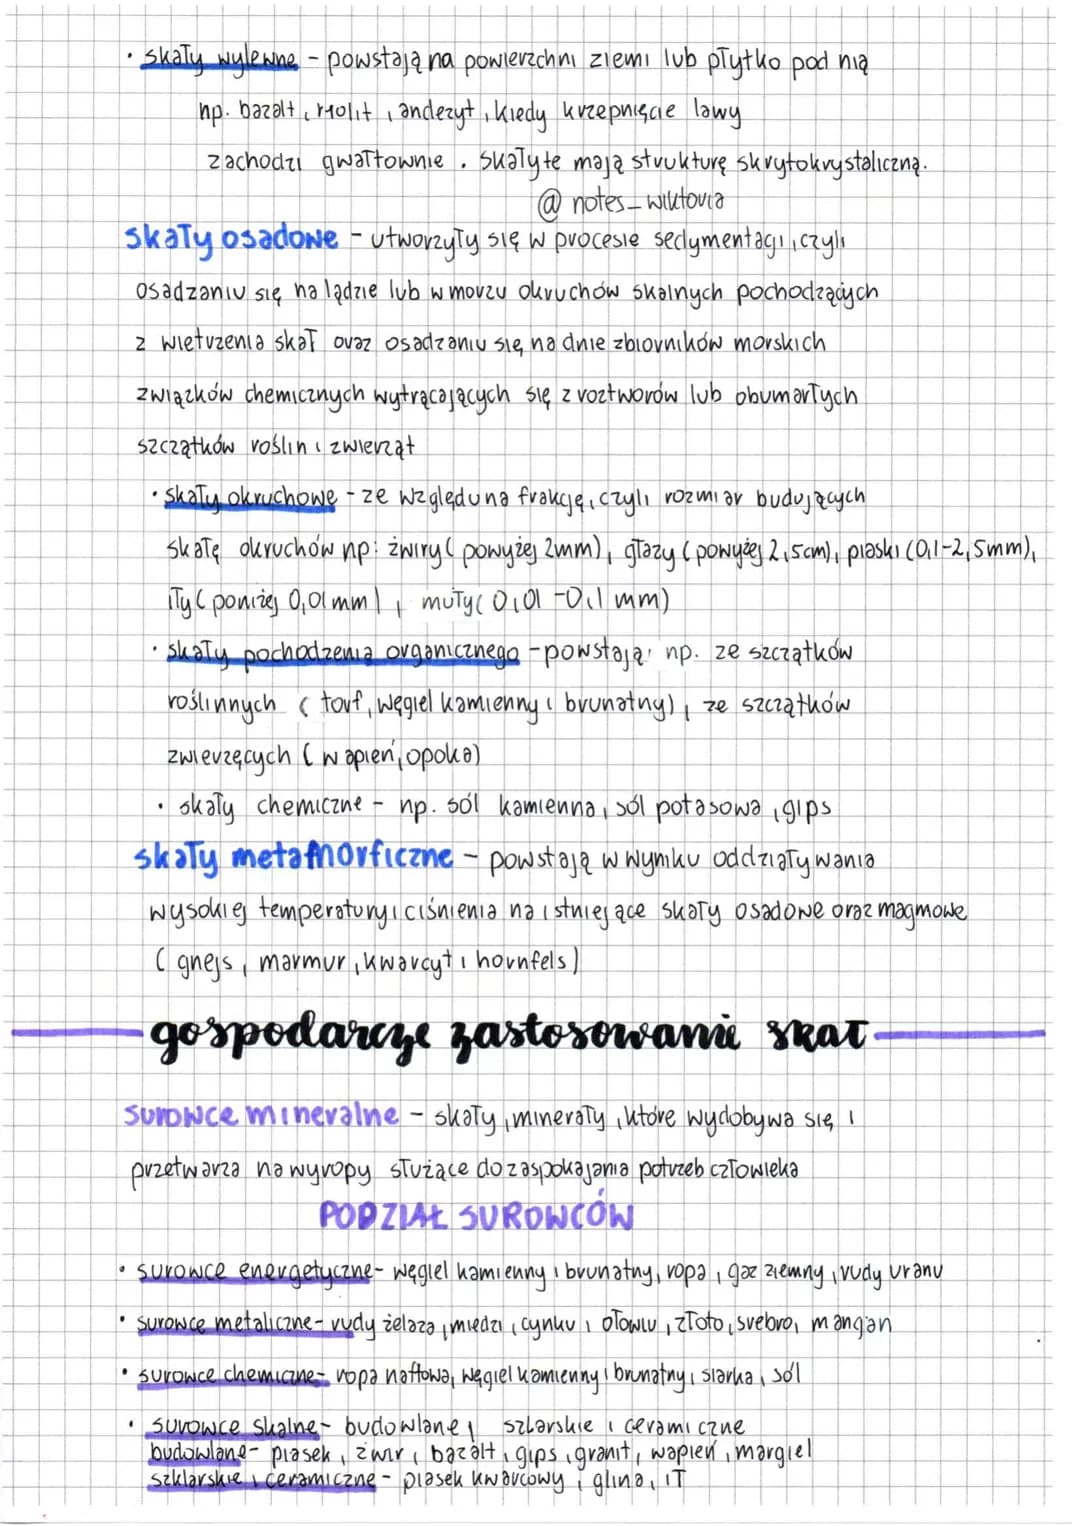 • skały wylewne - powstają na powierzchni ziemi lub płytko pod nią
np. bazalt, riolit, andezyt, kiedy krzepnięcie lawy
zachodzi gwałtownie. Skały te mają strukturę skrytokrystaliczną.
@notes_wiktoria
skały osadowe - utworzyły się w procesie sedymentacji, czyli
osadzaniu się na lądzie lub w morzu okruchów skalnych pochodzących
z wietrzenia skał oraz osadzaniu się na dnie zbiorników morskich
związków chemicznych wytrącających się z roztworów lub obumarłych
szczątków roślin i zwierząt
• skały okruchowe - ze względu na frakcję, czyli rozmiar budujących
skałę okruchów np: żwiry (powyżej 2mm), głazy (powyżej 2,5cm), piaski (0,1-2,5mm),
iły (poniżej 0,01mm), muły (0,01-0,1mm)
• skały pochodzenia organicznego - powstają: np. ze szczątków
roślinnych (torf, węgiel kamienny i brunatny), ze szczątków
zwierzęcych (wapień, opoka)
• skały chemiczne - np. sól kamienna, sól potasowa, gips
skały metamorficzne - powstają w wyniku oddziaływania
wysokiej temperatury i ciśnienia na istniejące skały osadowe oraz magmowe
(gnejs, marmur, kwarcyt i hornfels)
gospodarcze zastosowanie skał
surowce mineralne - skały, minerały, które wydobywa się i
przetwarza na wyropy służące do zaspokajania potrzeb człowieka
PODZIAŁ SUROWCÓW
• surowce energetyczne - węgiel kamienny i brunatny, ropa, gaz ziemny, rudy uranu
• surowce metaliczne - rudy żelaza, miedzi, cynku i ołowiu, złoto, srebro, mangan
• surowce chemiczne - ropa naftowa, węgiel kamienny i brunatny, siarka, sól
• surowce skalne - budowlane, szlarskie i ceramiczne
budowlane - piasek, żwir, bazalt, gips, granit, wapień, margiel
szklarskie i ceramiczne - piasek kwarcowy, glina, ił